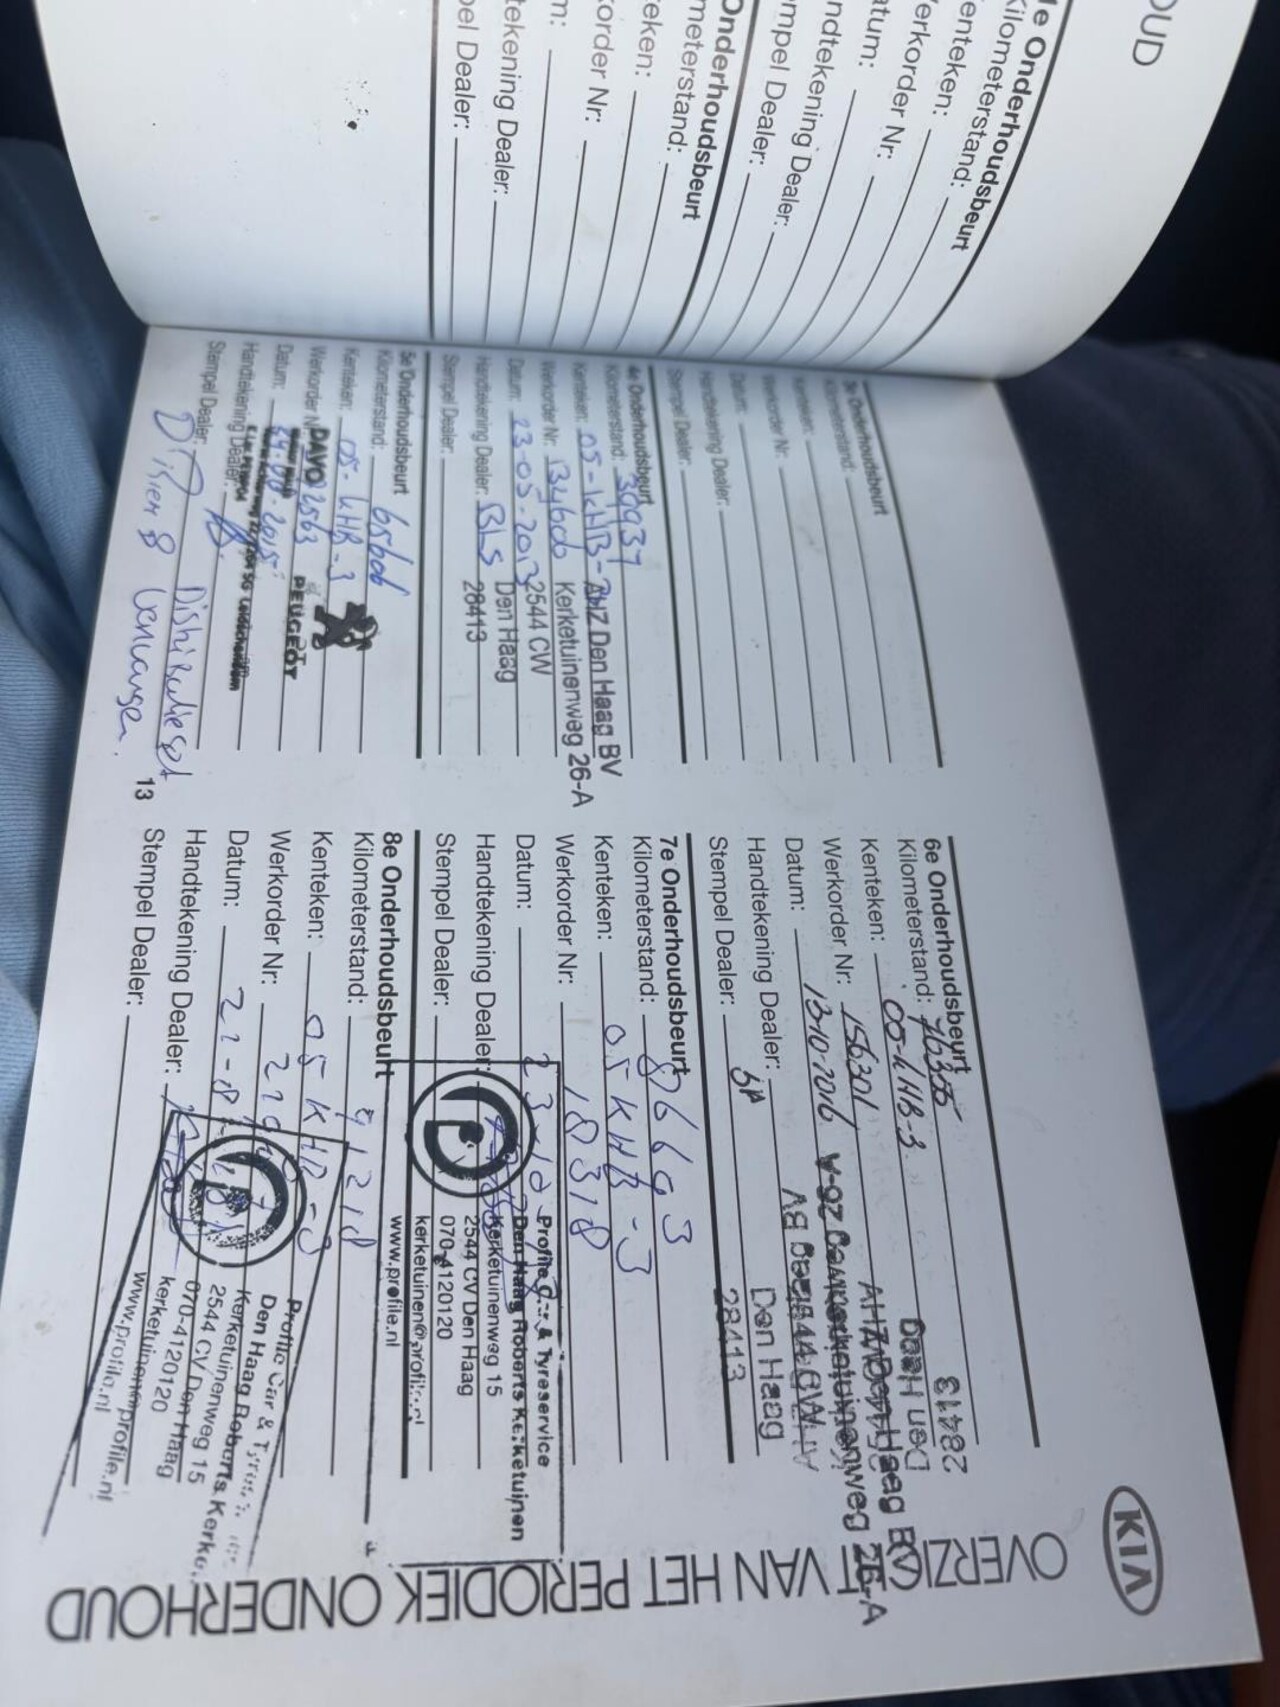 OUD
1e Onderhoudsbeurt
Kilometerstand:
Kenteken:
Werkorder Nr:
Datum:
Handtekening Dealer:
Stempel Dealer:
Onderhoudsbeurt
meterstand:
teken:
korder Nr:
m:
tekening Dealer:
pel Dealer:
3e Onderhoudsbeurt
Kilometerstand:
Kenteken:
Werkorder Nr:
Datum:
Handtekening Dealer:
Stempel Dealer:
4e Onderhoudsbeurt
Kilometerstand: 30937
Kenteken: 05-KHB-3
Werkorder Nr:
Datum: 23-05-2013
Handtekening Dealer:
Stempel Dealer:
AHZ Den Haag BV
Kerketuinenweg 26-A
2544 CW
Den Haag
28413
5e Onderhoudsbeurt
Kilometerstand: 65606
Kenteken: 05-KHB-3
Werkorder Nr: 2563
Datum: 2015
Handtekening Dealer:
Stempel Dealer:
DAVO
PEUGEOT
Distributieset
vervangen.
13
KIA
OVERZICHT VAN HET PERIODIEK ONDERHOUD
6e Onderhoudsbeurt
Kilometerstand:
Kenteken: 05-KHB-3
Werkorder Nr: 156301
Datum: 13-10-2016
Handtekening Dealer:
Stempel Dealer:
28413
Den Haag
AHZ Den Haag BV
Kerketuinenweg 26-A
Den Haag
28413
7e Onderhoudsbeurt
Kilometerstand: 86693
Kenteken: 05KHB-3
Werkorder Nr: 18318
Datum: 23-10
Handtekening Dealer:
Stempel Dealer:
Profile & Tyreservice
Den Haag Roberts Kerketuinen
Kerketuinenweg 15
2544 CV Den Haag
070-4120120
kerketuinen@profile.nl
www.profile.nl
8e Onderhoudsbeurt
Kilometerstand: 91218
Kenteken: 05KHB-3
Werkorder Nr:
Datum: 22-8
Handtekening Dealer:
Stempel Dealer:
Profile Car &
Den Haag Roberts
Kerketuinenweg 15
2544 CV Den Haag
070-4120120
kerketuinen@profile.nl
www.profile.nl